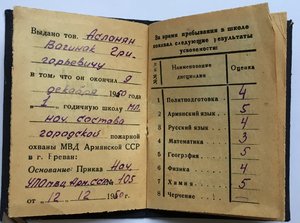 Выдано тов. Аслонян
Вагинак Гри-
горьевичу
в том, что он окончил 9
декабря 1950 года
1 годичную школу мл.
нач. состава
городской пожарной
охраны МВД Армянской ССР
в г. Ереван:
Основание: Приказ Нач.
УПО МВД Арм.ССР 105
от 12 12 1950г.
За время пребывания в школе
показал следующие результаты
успеваемости:
№№ Наименование дисциплин Оценка
1 Политподготовка 4
2 Армянский язык 5
3 Русский язык 4
4 Математика 3
5 География 5
6 Физика 4
7 Химия 5
8 Черчение